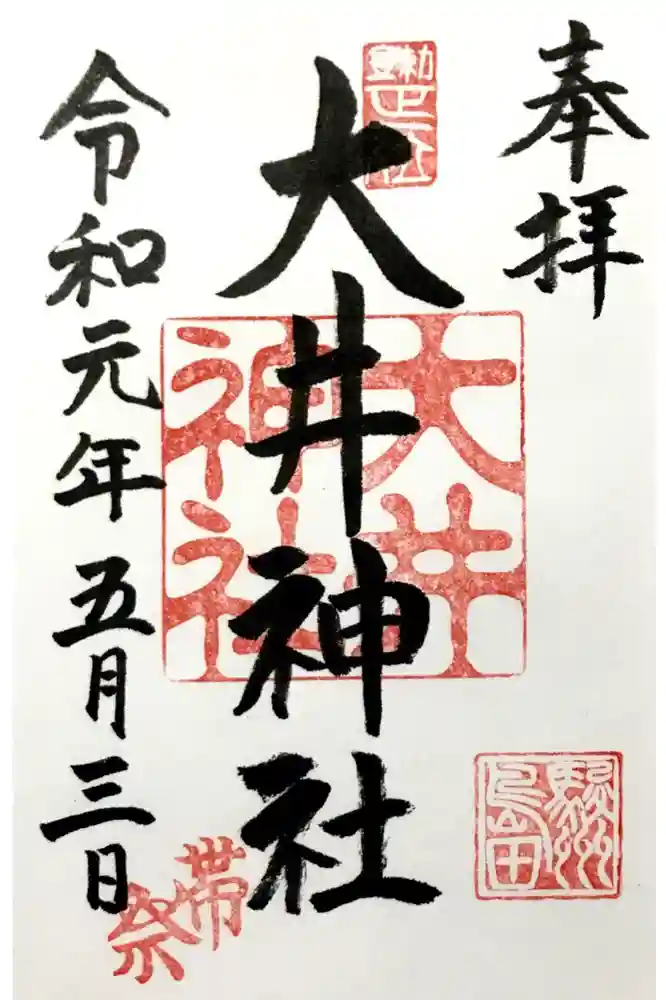 奉拝
大井神社
令和元年五月三日
大井
神社
駿州
島田
帯
祭